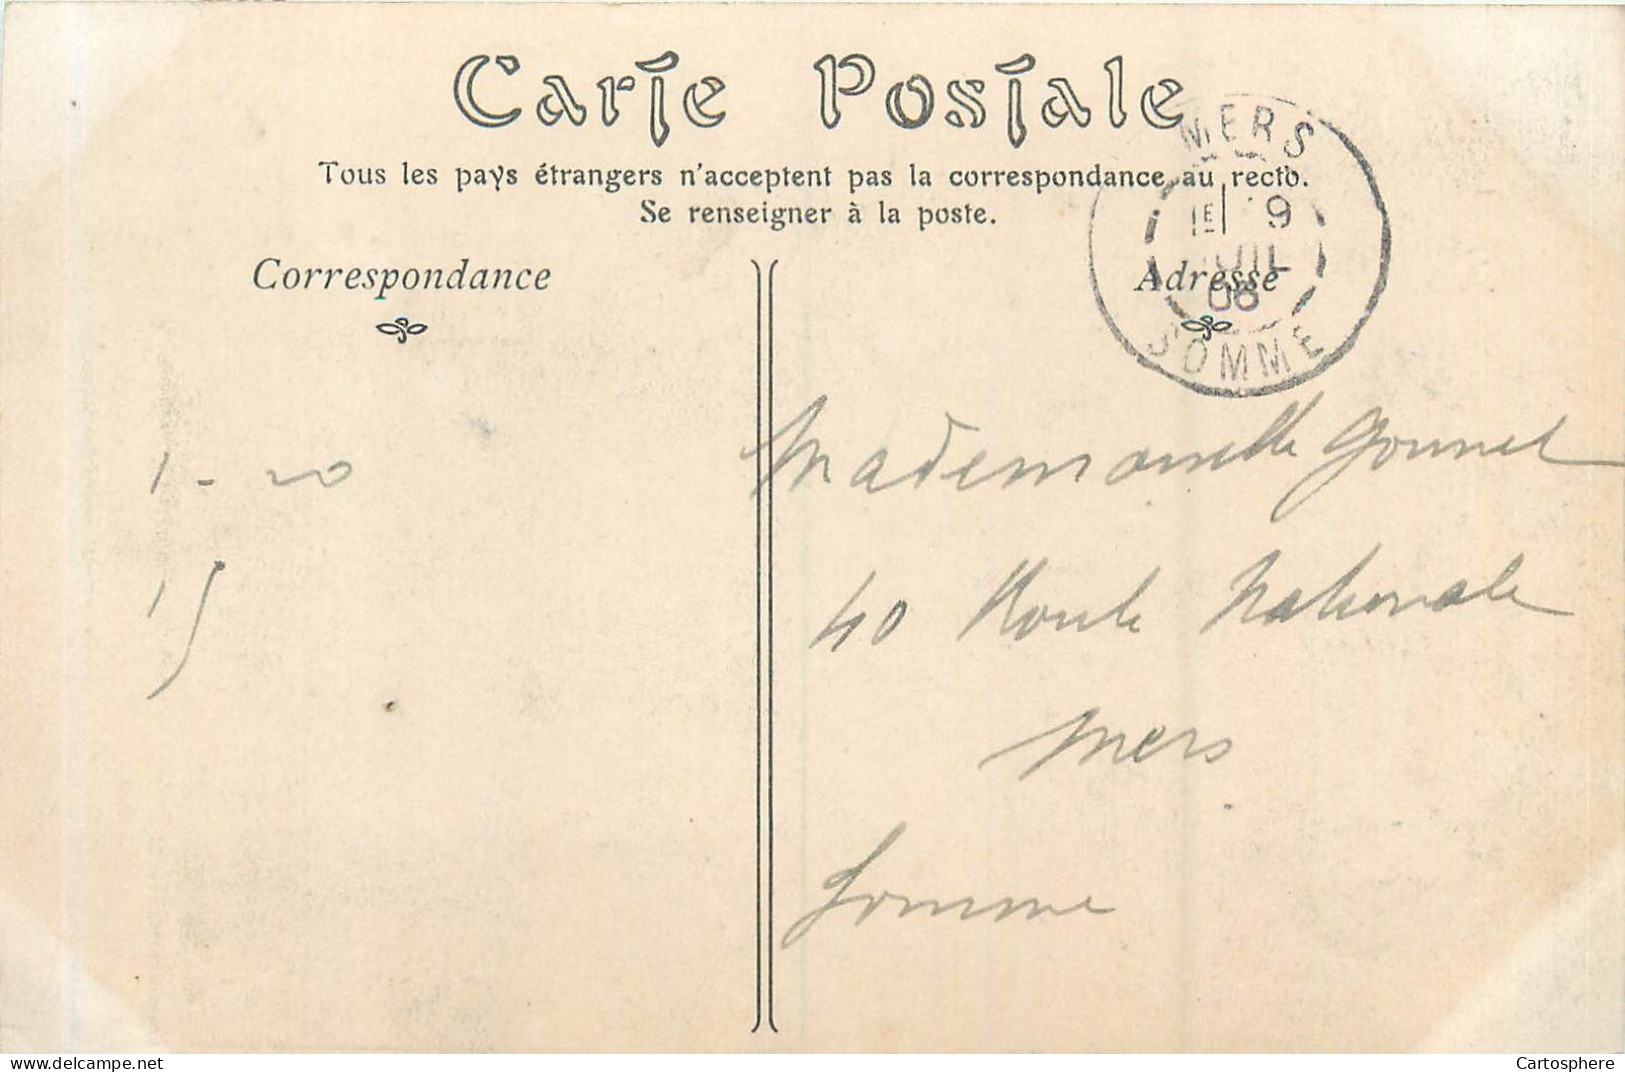 Carte Postale
Tous les pays étrangers n'acceptent pas la correspondance au recto.
Se renseigner à la poste.
Correspondance
Adresse
MERS
1E 19
JUIL
06
SOMME
1-20
15
Mademoiselle Gonnet
40 Route Nationale
Mers
Somme
delcampe.net
Cartosphere